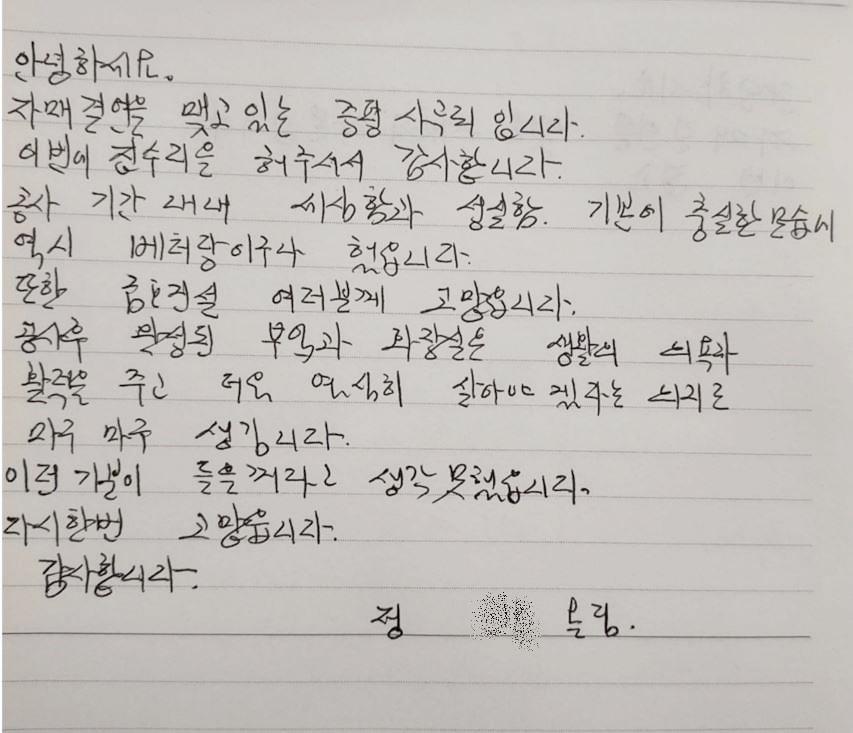 안녕하세요.
자매결연을 맺고 있는 증평 사곡리 입니다.
이번에 집수리을 해주셔서 감사합니다.
공사 기간 내내 세심함과 성실함. 기본이 충실한 모습에
역시 베터랑이구나 했습니다.
또한 금호건설 여러분께 고맙습니다.
공사후 완성된 부엌과 화장실은 생활의 의욕과
활력을 주고 더욱 열심히 살아야 겠다는 의지로
마구 마구 생깁니다.
이런 기분이 들을꺼라고 생각 못했습니다.
다시한번 고맙습니다.
감사합니다.
정 올림.